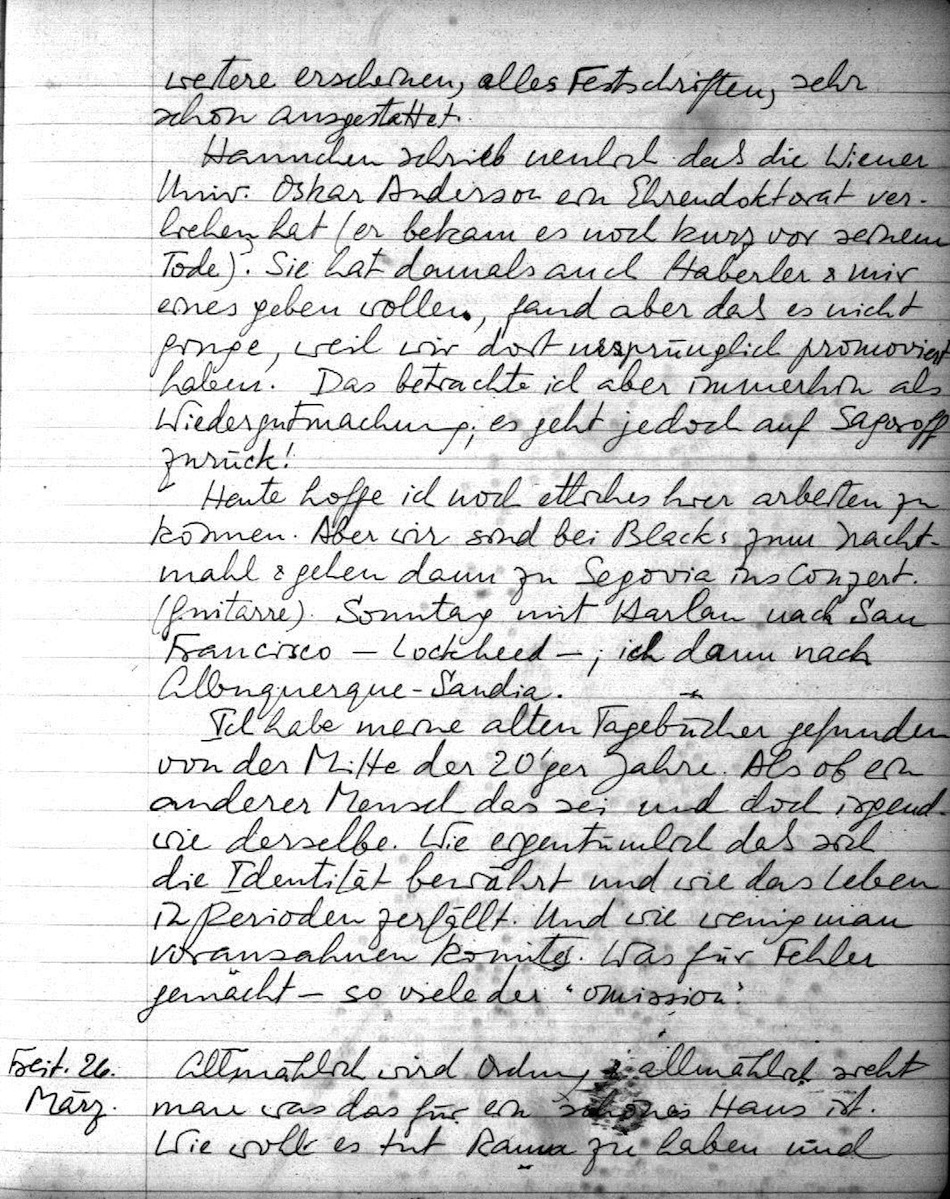 weitere erscheinen, alles Festschriften, sehr
schön ausgestattet.
Hannchen schrieb neulich daß die Wiener
Univ. Oskar Anderson ein Ehrendoktorat ver-
liehen hat (er bekam es noch kurz vor seinem
Tode). Sie hat damals auch Haberler & mir
eines geben wollen, fand aber daß es nicht
ginge, weil wir dort ursprünglich promoviert
haben. Das betrachte ich aber immerhin als
Wiedergutmachung; es geht jedoch auf Sagoroff
zurück!
Heute hoffe ich noch etliches hier arbeiten zu
können. Aber wir sind bei Blacks zum Nacht-
mahl & gehen dann zu Segovia ins Conzert.
(Guitarre). Sonntag mit Harlan nach San
Francisco – Lockheed – ; ich dann nach
Albuquerque-Sandia.
Ich habe meine alten Tagebücher gefunden
von der Mitte der 20'ger Jahre. Als ob ein
anderer Mensch das sei und doch irgend-
wie derselbe. Wie eigentümlich daß sich
die Identität bewährt und wie das Leben
in Perioden zerfällt. Und wie wenig man
vorausahnen konnte. Was für Fehler
gemacht – so viele der "omission".
Freit. 26. Allmählich wird Ordnung & allmählich sieht
März. man was das für ein schönes Haus ist.
Wie wohl es tut Raum zu haben und